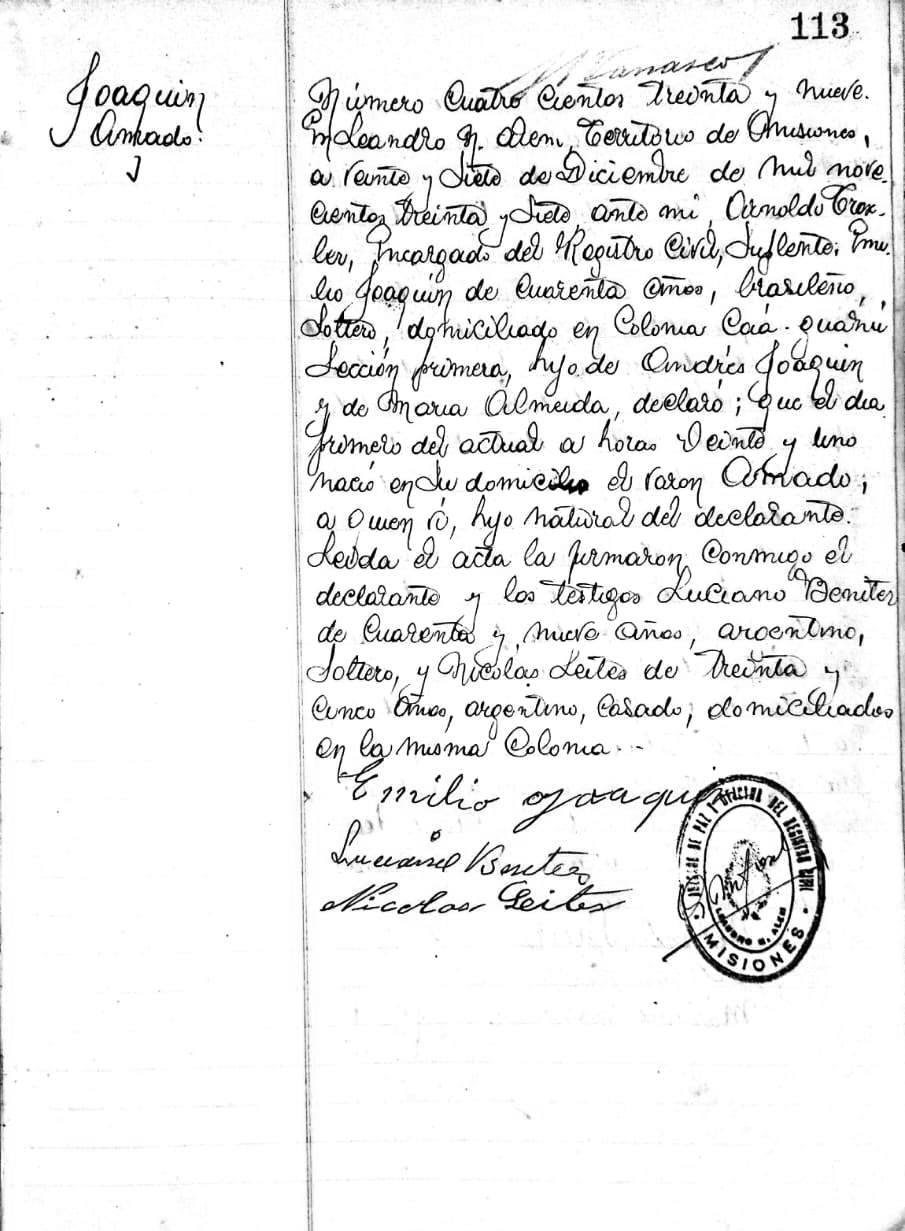 113
Joaquin
Amado.
Número Cuatro cientos treinta y nueve.
En Leandro N. Alem, Territorio de Misiones,
a veinte y Siete de Diciembre de mil nove-
cientos treinta y Siete, ante mi, Arnoldo Trox-
ler, Encargado del Registro Civil, Suplente; Emi-
lio Joaquin de Cuarenta años, brasileño,
Soltero, domiciliado en Colonia Caá-guarú
Sección primera, hijo de Andrés Joaquin
y de Maria Almeida, declaró; que el dia
primero del actual a horas Veinte y uno
nació en Su domicilio el varon Amado;
a quien ví, hijo natural del declarante.
Leida el acta la firmaron conmigo el
declarante y los testigos Luciano Benitez
de Cuarenta y nueve años, argentino,
Soltero, y Nicolas Leites de treinta y
cinco años, argentino, casado, domiciliados
en la misma Colonia.
Emilio Joaquin
Luciano Benitez
Nicolas Leites
JUZGADO DE PAZ Y OFICINA DEL REGISTRO CIVIL
LEANDRO N. ALEM
MISIONES